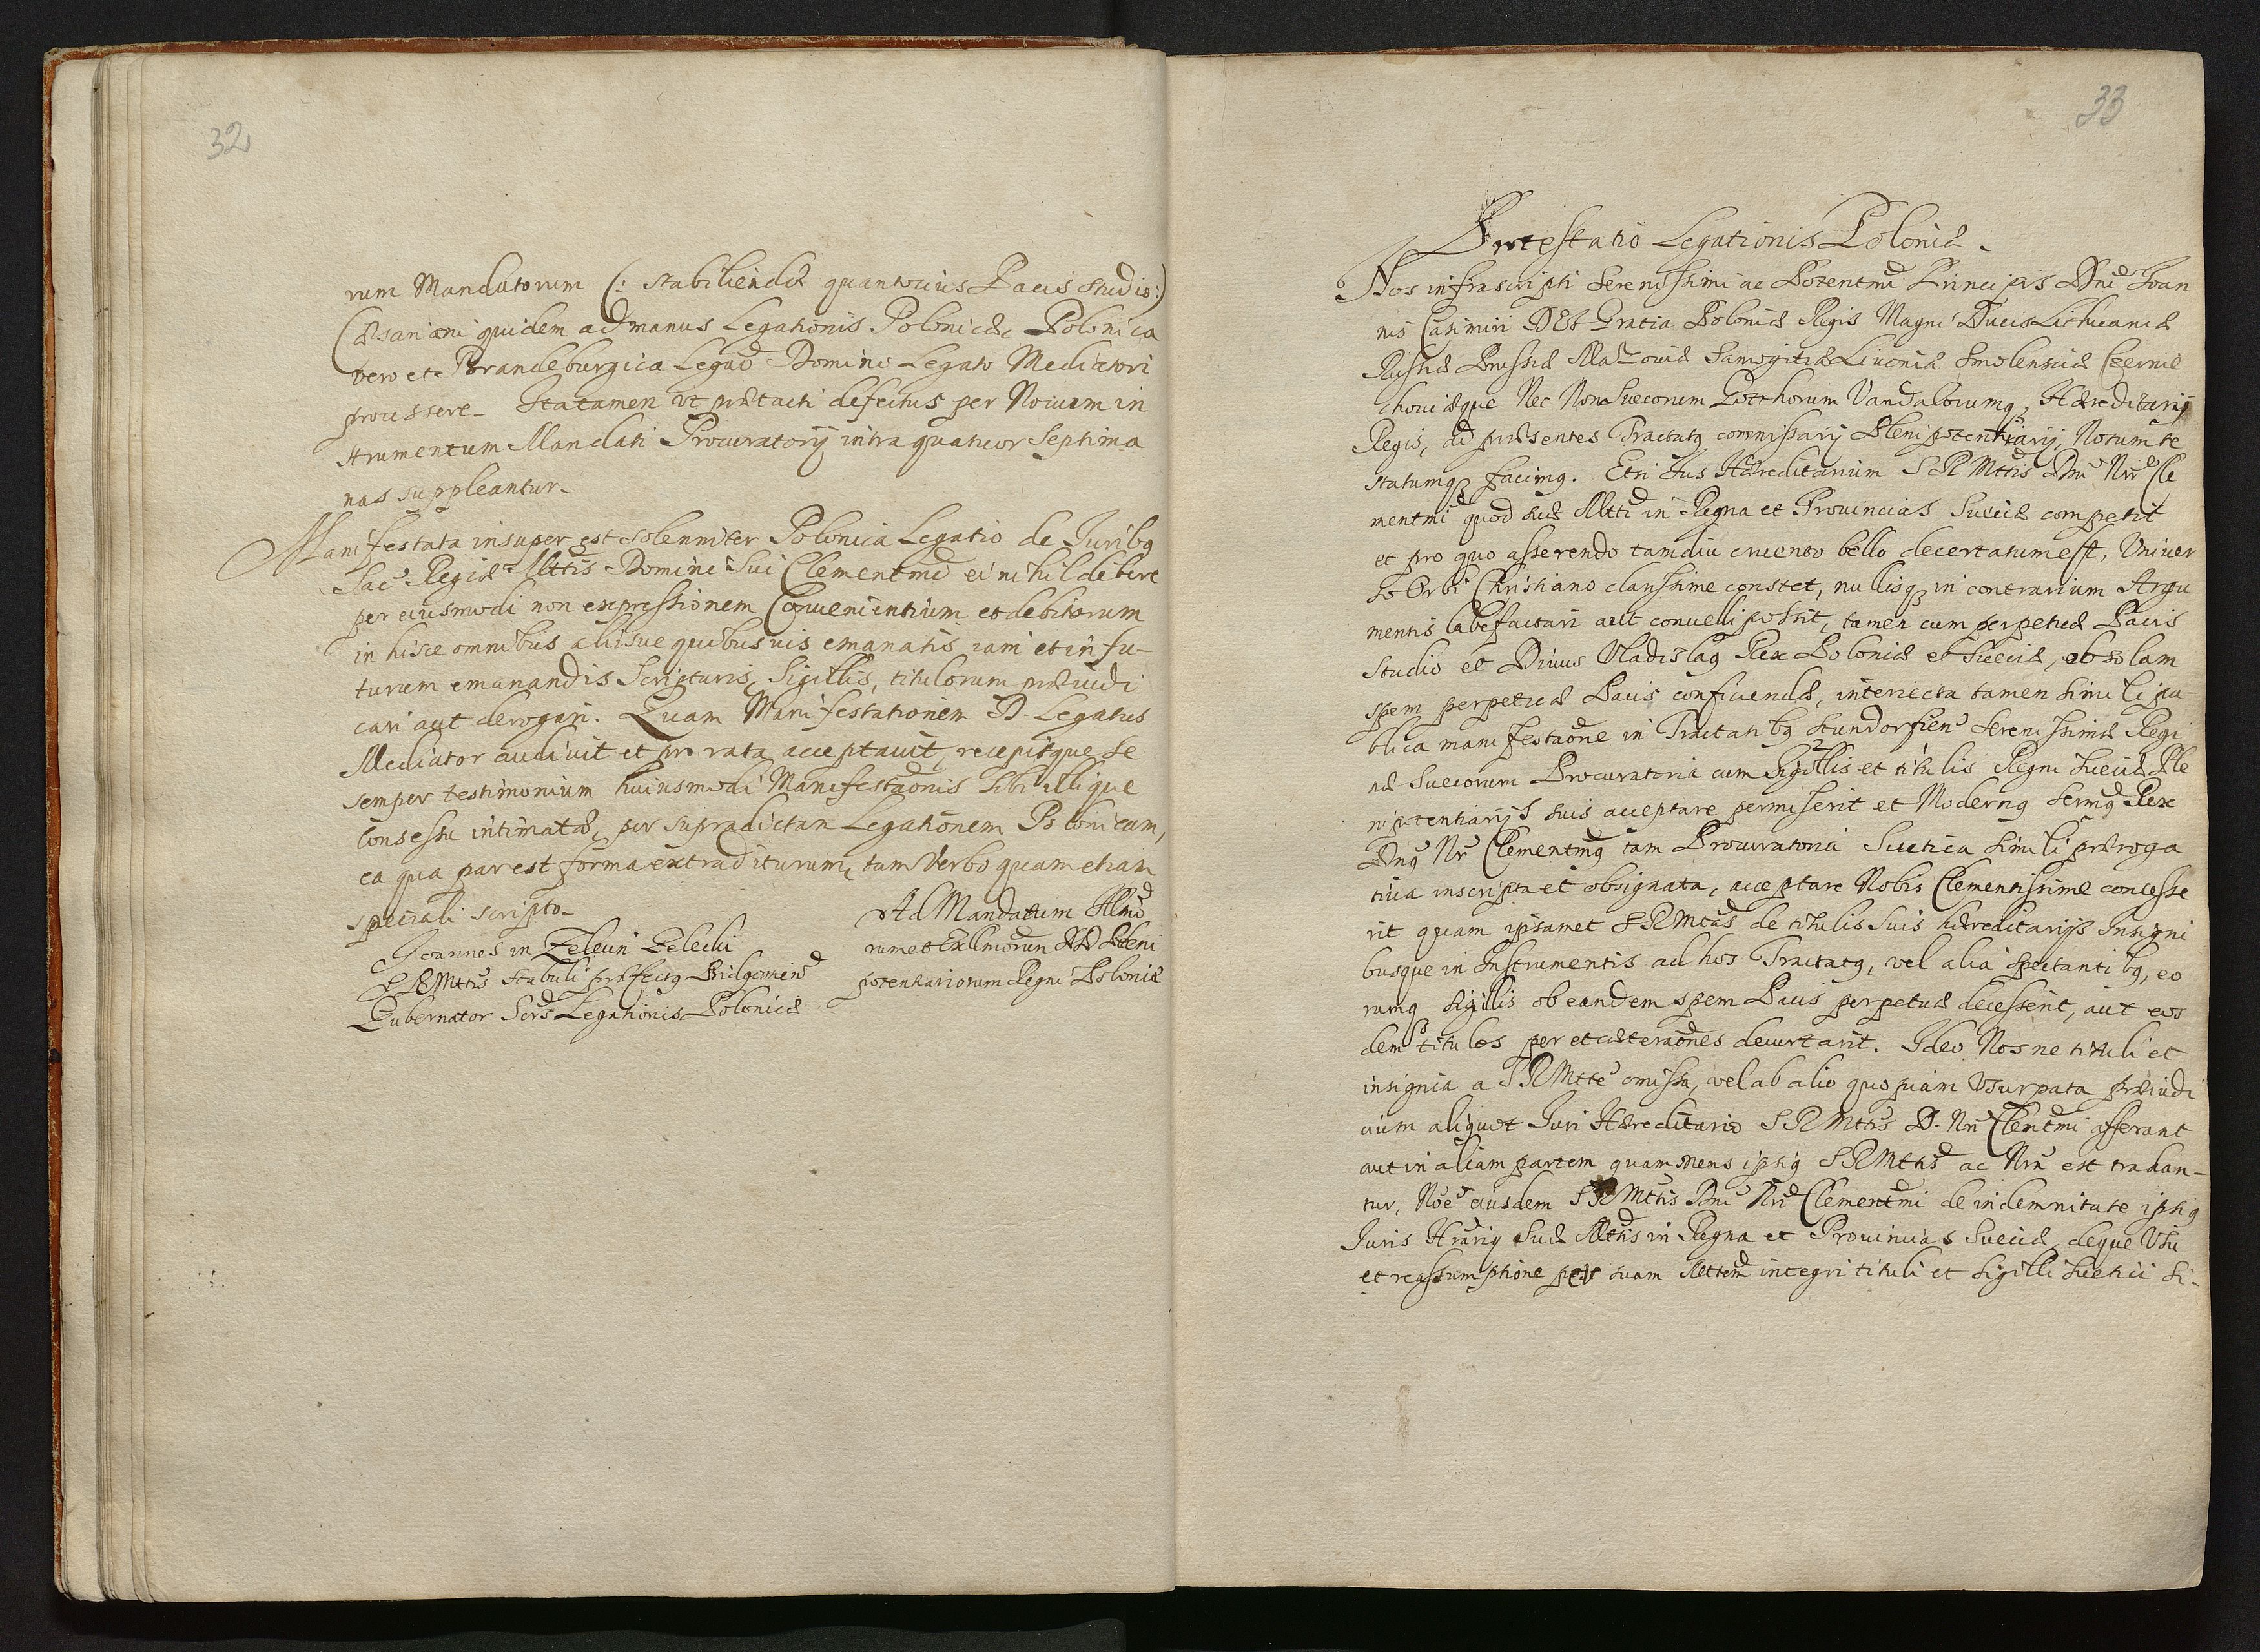 32
rum Mandatorum (: stabiliendæ quantocius Pacis studio :)
Cæsariani quidem ad manus Legationis Polonicæ, Polonica
vero et Brandeburgica Legao Domino Legato Mediatori
processere. Ita tamen vt prætacti defectus per Novum in
strumentum Mandati Procuratorij intra quatuor Septima
nas suppleantur.
Manifestata insuper est solenniter Polonica Legatio de Juribq
Sac Regiæ Mttis Domini Sui Clementmi ei nihil debere
per eiusmodi non expressionem Convenientium et debitorum
in hisce omnibus aliisue quibusuis emanatis iam et in fu-
turum emanandis Scripturis, Sigillis, titulorum præiudi
cari aut derogari. Quam Manifestationem D. Legatus
Mediator audiuit et pro rata acceptauit, recepitque se
semper testimonium huiusmodi Manifestaonis sibi illique
Consessu intimatæ, per supradictam Legationem Polonicam,
ea qua par est forma extraditurum, tam Verbo quam etiam
speciali scripto.
Joannes in Zelecin Zelecki
SRMttis Stabuli præfectq Bidgostien
Gubernator Scrs Legationis Polonicæ
Ad Mandatum Illmo
rum et Exllmorum DD Pleni
potentiariorum Regni Poloniæ
33
Protestatio Legationis Poloniæ.
Nos infrascripti Serenissimi ac Potentmi Principis Dni Ioan
nis Casimiri DEI Gratia Poloniæ Regis Magni Ducis Lithuaniæ
Russiæ Prussiæ Mazouiæ Samogitiæ Liuoniæ Smolensciæ Czernie
chouiæque Nec Non Suecorum Gotthorum Vandalorumq Hæreditarij
Regis, ad præsentes Tractatq commissarij Plenipotentiarij, Notum te
statumqz facimq. Etsi Ius Hæreditarium SRMttis Dni Nri Cle
mentmi quod suæ Mtti in Regna et Prouincias Sueciæ competit
et pro quo asserendo tamdiu cruento bello decertatum est, Vniuer
so Orbi Christiano clarissime constet, nullisqz in contrarium Argu
mentis labefactari aut conuelli possit, tamen cum perpetuæ Pacis
Studio et Diuus Vladislaq Rex Poloniæ et Sueciæ, ob solam
spem perpetuæ Pacis conficiendæ, interiecta tamen simili pu-
blica manifestaone in Tractatibq Stundorfien Serenissimæ Regi
næ Suecorum Procuratoria cum Sigillis et titulis Regni Sueciæ Ple
nipotentiarijs suis acceptare permiserit et Modernq Sermq Rex
Dnq Nr Clementmq tam Procuratoria Suetica simili præroga
tiua inscripta et obsignata, acceptare Nobis Clementissime concesse
rit quam ipsamet SRMtas de titulis suis hæreditarijs Insigni
busque in Instrumentis ad hos Tractatq, vel alia spectantibq, eo
rumq sigillis ob eandem spem Pacis perpetuæ decesserit, aut eos
dem titulos per et cæteraones decurtarit. Ideo Nos ne tituli et
insignia a SRMtte omissa, vel ab alio quopiam Vsurpata præiudi
cium aliquot Iuri Hæreditario SRMttis D. Nri Clentmi afferant
aut in aliam partem quam Mens ipsiq SRMttis ac Nra est trahan-
tur, Noe eiusdem SRMttis Dni Nri Clementmi de indemnitate ipsiq
Iuris Hrarij suæ Mttis in Regna et Prouincias Sueciæ, deque Vsu
et reassumptione per suam Mttem integri tituli et Sigilli Suetici si-